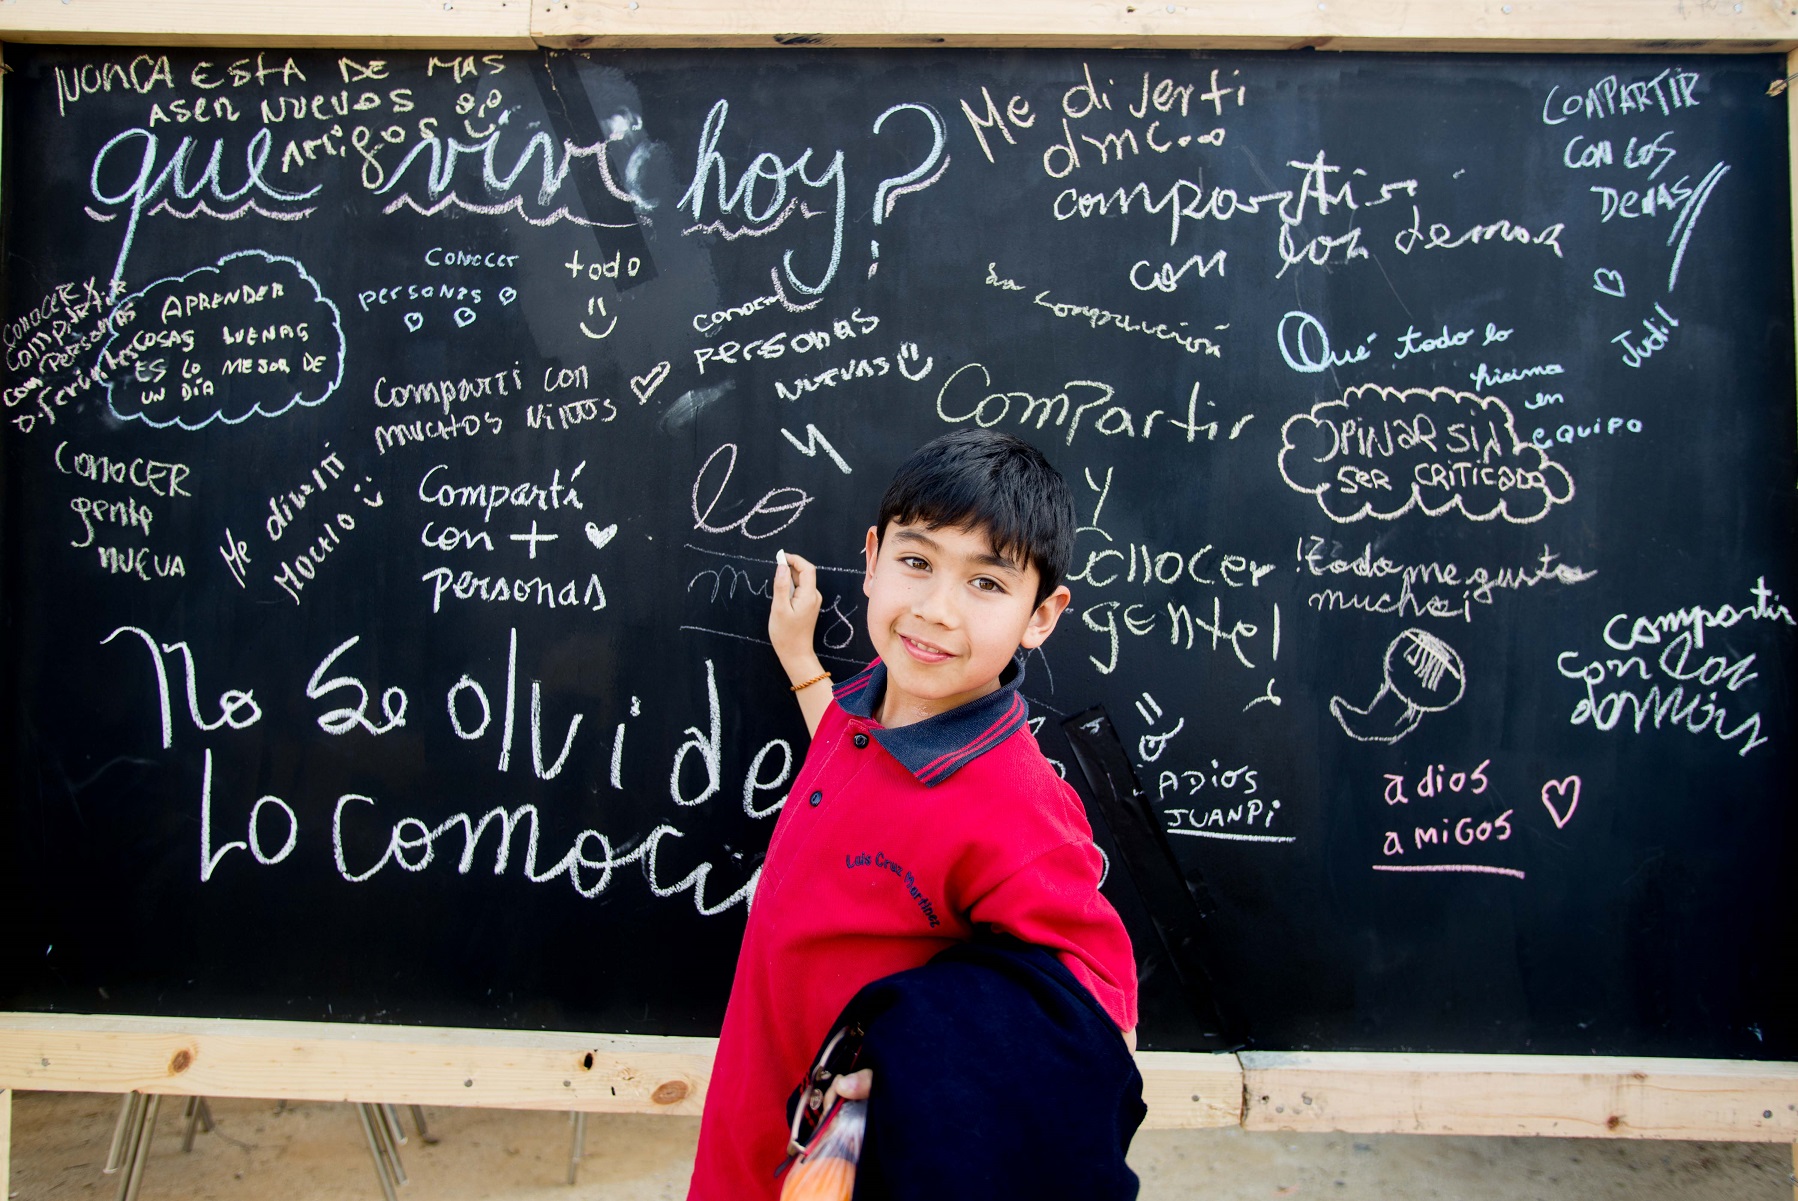 NUNCA ESTA DE MAS
ASER NUEVOS
AMigOS
que viví hoy?
Me diverti
dmc...
compartir
con los demas
COMPARTIR
CON LOS
DEMAS
CONOCER
COMPARTIR
con personas
Diferentes
APRENDER
COSAS BUENAS
ES LO MEJOR DE
UN DÍA
CONOCER
personas
todo
conocer
personas
nuevas
Compartí con
muchos niños
Compartir
y
conocer
gente!
Qué todo lo
hicimo
en
equipo
Judit
OPINAR SIN
SER CRITICADO
CONOCER
gente
nueva
Me diverti
MUCHO
Compartí
con +
personas
lo
muy
!todo me gusto
mucho¡
compartir
con los
demás
No Se olvide
Lo comoci
ADIOS
JUANPI
adios
amigos
Luis Cruz Martinez